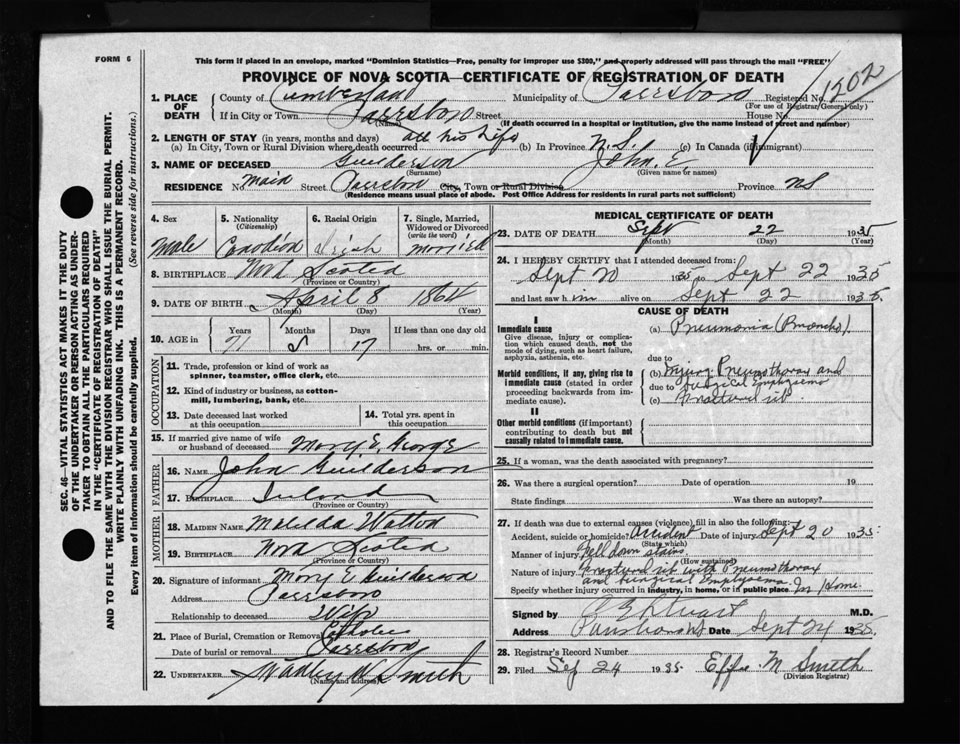 FORM 6
This form if placed in an envelope, marked "Dominion Statistics—Free, penalty for improper use $300," and properly addressed will pass through the mail "FREE"
PROVINCE OF NOVA SCOTIA—CERTIFICATE OF REGISTRATION OF DEATH
1202
1. PLACE OF DEATH
County of Cumberland Municipality of Parrsboro Registered No.
(For use of Registrar General only)
If in City or Town Parrsboro Street House No.
(Name) (If death occurred in a hospital or institution, give the name instead of street and number)
2. LENGTH OF STAY (in years, months and days)
(a) In City, Town or Rural Division where death occurred all his life (b) In Province N.S. (c) In Canada (if immigrant)
3. NAME OF DECEASED Guilderson John. E
(Surname) (Given name or names)
RESIDENCE No. Main Street Parrsboro City, Town or Rural Division Province NS
(Residence means usual place of abode. Post Office Address for residents in rural parts not sufficient)
4. Sex Male
5. Nationality (Citizenship) Canadian
6. Racial Origin Irish
7. Single, Married, Widowed or Divorced (write the word) married
8. BIRTHPLACE Nova Scotia
(Province or Country)
9. DATE OF BIRTH April 8 1864
(Month) (Day) (Year)
10. AGE in Years Months Days If less than one day old
71 5 17 hrs. or min.
OCCUPATION
11. Trade, profession or kind of work as spinner, teamster, office clerk, etc.
12. Kind of industry or business, as cotton-mill, lumbering, bank, etc.
13. Date deceased last worked at this occupation
14. Total yrs. spent in this occupation
15. If married give name of wife or husband of deceased Mary E. George
FATHER
16. NAME John Guilderson
17. BIRTHPLACE Ireland
(Province or Country)
MOTHER
18. MAIDEN NAME Watton
19. BIRTHPLACE Nova Scotia
(Province or Country)
20. Signature of informant Mary E Guilderson
Address Parrsboro
Relationship to deceased Wife
21. Place of Burial, Cremation or Removal Catholic
Date of burial or removal Parrsboro
22. UNDERTAKER Smith
(Name and address)
MEDICAL CERTIFICATE OF DEATH
23. DATE OF DEATH Sept 22 1935
(Month) (Day) (Year)
24. I HEREBY CERTIFY that I attended deceased from:
Sept 20 1935 to Sept 22 1935
and last saw him alive on Sept 22 1935.
CAUSE OF DEATH
I
Immediate cause
Give disease, injury or complication which caused death, not the mode of dying, such as heart failure, asphyxia, asthenia, etc.
(a) Pneumonia (Broncho).
due to
Morbid conditions, if any, giving rise to immediate cause (stated in order proceeding backwards from immediate cause).
(b) Injury Pneumothorax and
due to Surgical Emphysema
(c) Fractured rib.
II
Other morbid conditions (if important) contributing to death but not causally related to immediate cause.
25. If a woman, was the death associated with pregnancy?
26. Was there a surgical operation? Date of operation 19
State findings Was there an autopsy?
27. If death was due to external causes (violence) fill in also the following:
Accident, suicide or homicide? Accident Date of injury Sept 20 1935
(State which)
Manner of injury Fell down stairs
(How sustained)
Nature of injury Fractured rib with Pneumothorax
and surgical Emphysema.
Specify whether injury occurred in industry, in home, or in public place. In Home.
Signed by M.D.
Address Parrsboro NS Date Sept 24 1935.
28. Registrar's Record Number
29. Filed Sep 24 1935 Effie M Smith
(Division Registrar)
SEC. 46—VITAL STATISTICS ACT MAKES IT THE DUTY
OF THE UNDERTAKER OR PERSON ACTING AS UNDER-
TAKER TO OBTAIN ALL THE PARTICULARS REQUIRED
IN THE "CERTIFICATE OF REGISTRATION OF DEATH"
AND TO FILE THE SAME WITH THE DIVISION REGISTRAR WHO SHALL ISSUE THE BURIAL PERMIT.
WRITE PLAINLY WITH UNFADING INK. THIS IS A PERMANENT RECORD.
Every item of information should be carefully supplied. (See reverse side for instructions.)